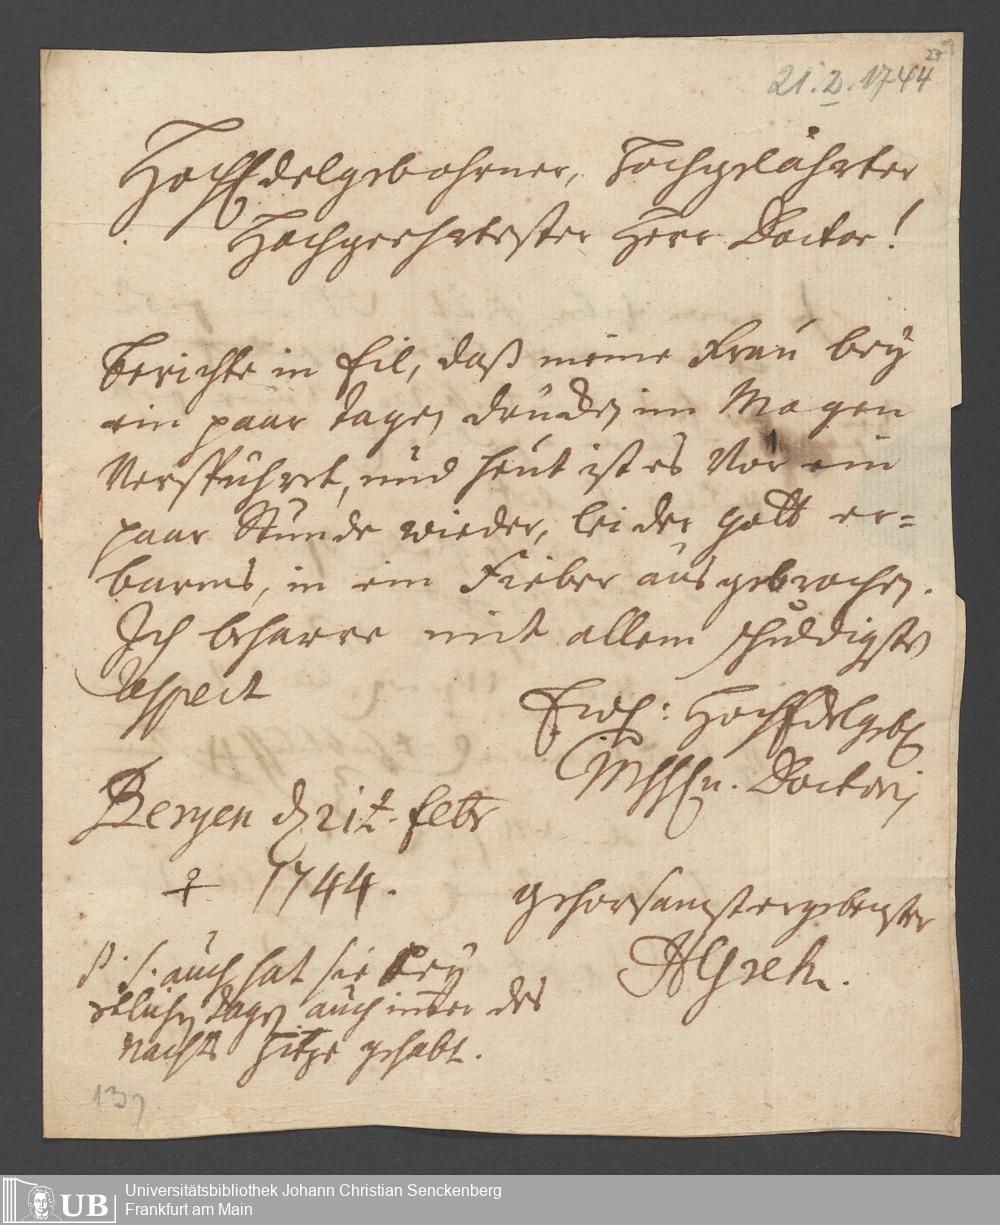 21. 2. 1744
HochEdelgebohrner, Hochgelährter
Hochgeehrtester Herr Doctor!
Berichte in Eil, daß meine Frau bey
ein paar Tagen drücken im Magen
Verspühret, und heut ist es Vor ein
paar Stunde wieder, leider Gott er=
barms, in ein Fieber ausgebrochen.
Ich beharre mit allem schuldigsten
Respect
Ew: HochEdelgeb
Doctoris
Bergen d 21t. Febr
1744.
gehorsamst ergebenster
P. S. auch hat sie bey
etlichen Tagen auch immer des
Nachts Hitze gehabt.
137
UB
Universitätsbibliothek Johann Christian Senckenberg
Frankfurt am Main